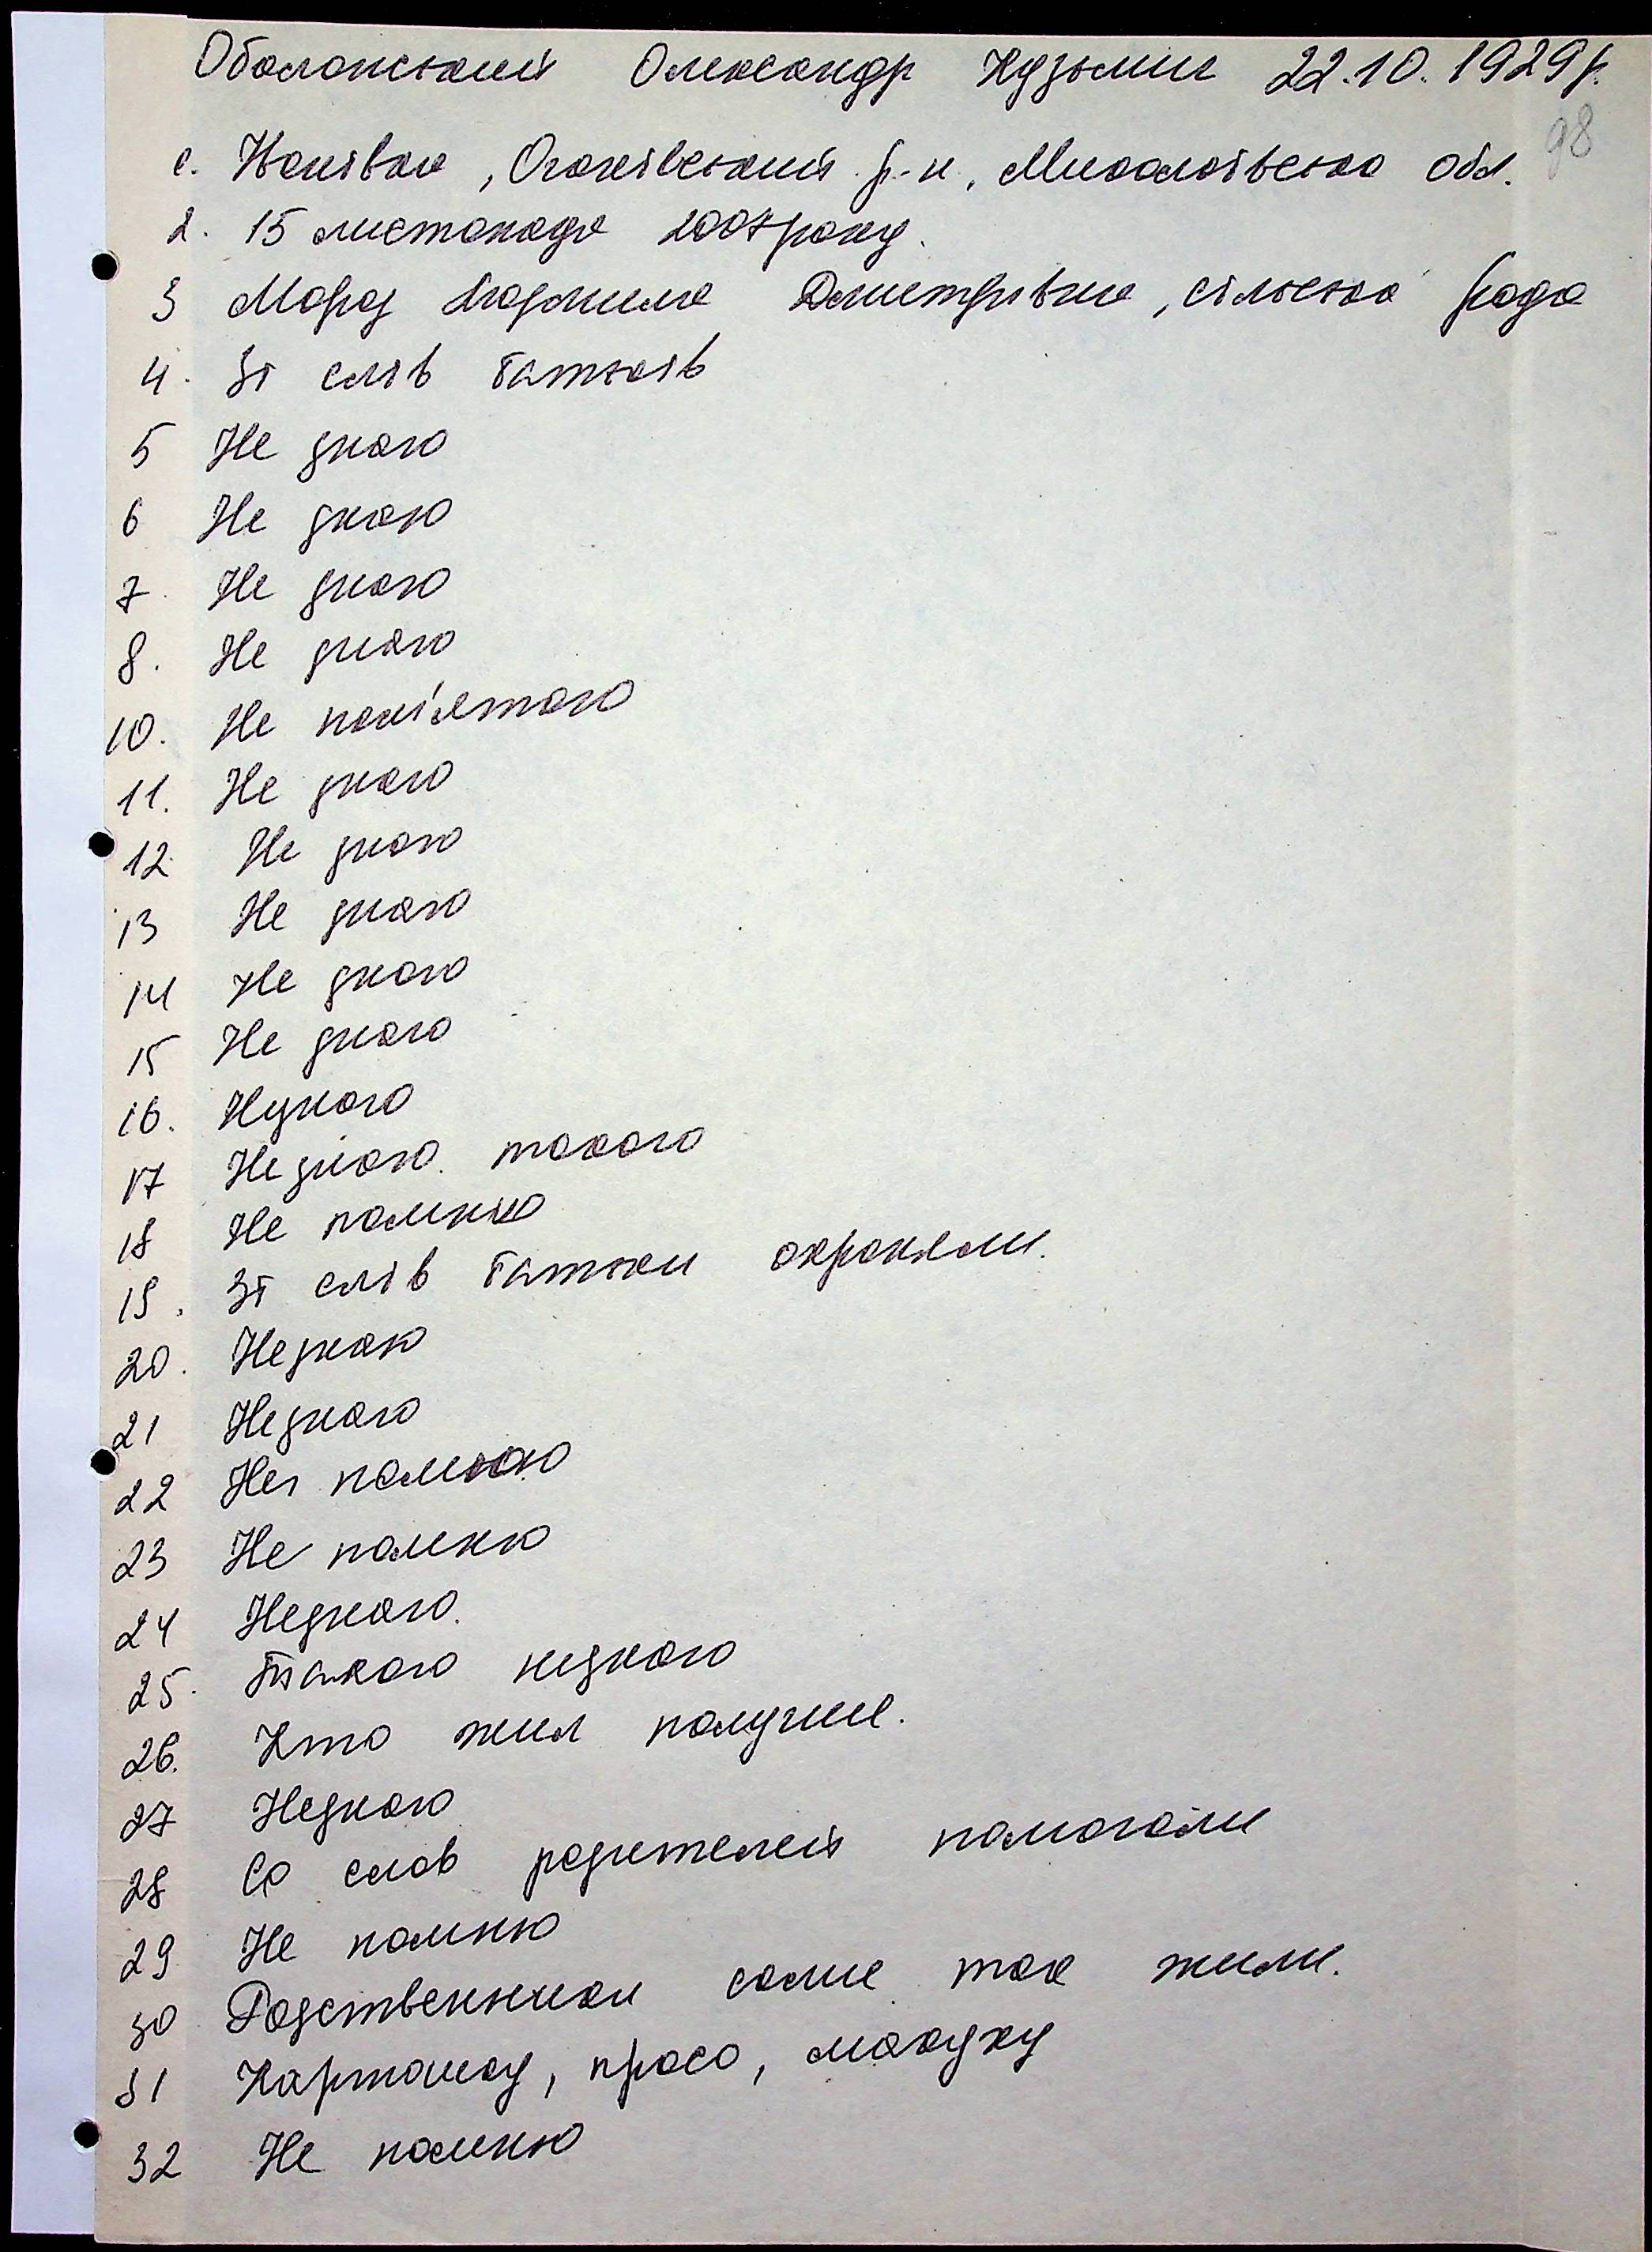 Оболонський Олександр Кузьмич 22.10.1929р.
98
с. Іванівка, Очаківський р-н, Миколаївська обл.
2. 15 листопада 2007 року.
3 Мороз Людмила Дмитрівна, сільська рада
4. Зі слів батьків
5 Не знаю
6 Не знаю
7. Не знаю
8. Не знаю
10. Не пам'ятаю
11. Не знаю
12. Не знаю
13 Не знаю
14 Не знаю
15 Не знаю
16. Незнаю
17 Незнаю такого
18 Не помню
19. Зі слів батьки охраняли.
20. Незнаю
21 Незнаю
22 Не помню
23 Не помню
24 Незнаю.
25. Такого незнаю
26. Кто жил получше.
27 Незнаю
28 Со слов родителей помогали
29 Не помню
30 Родственники сами так жили.
31 Картошку, просо, макуху
32 Не помню